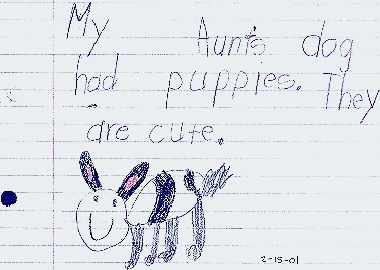 My Aunts dog
had puppies. They
are cute.
2-15-01